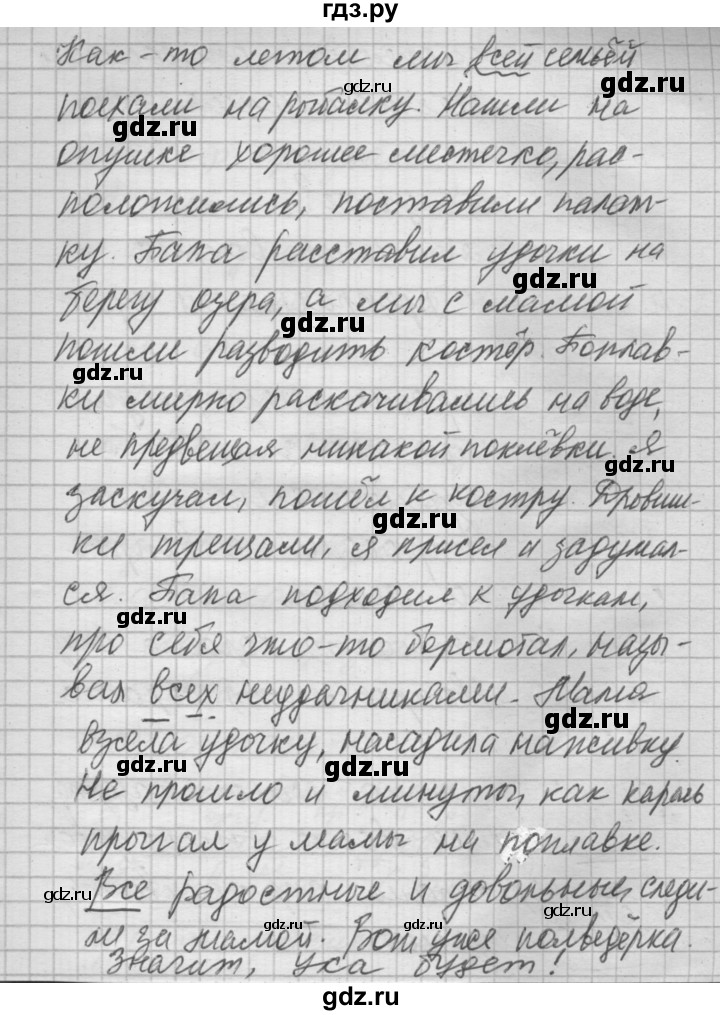 гдз.ру
Как-то летом мы всей семьёй
поехали на рыбалку. Нашли на
опушке хорошее местечко, рас-
положились, поставили палат-
ку. Папа расставил удочки на
берегу озера, а мы с мамой
пошли разводить костёр. Поплав-
ки мирно раскачивались на воде,
не предвещая никакой поклёвки. Я
заскучал, пошёл к костру. Дровиш-
ки трещали, я присел и задумал-
ся. Папа подходил к удочкам,
про себя что-то бормотал, назы-
вая всех неудачниками. Мама
взела удочку, насадила наживку.
Не прошло и минуты, как карась
прыгал у мамы на поплавке.
Все радостные и довольные, следи-
ли за мамой. Вот уже полведёрка.
Значит, уха будет!
gdz.ru